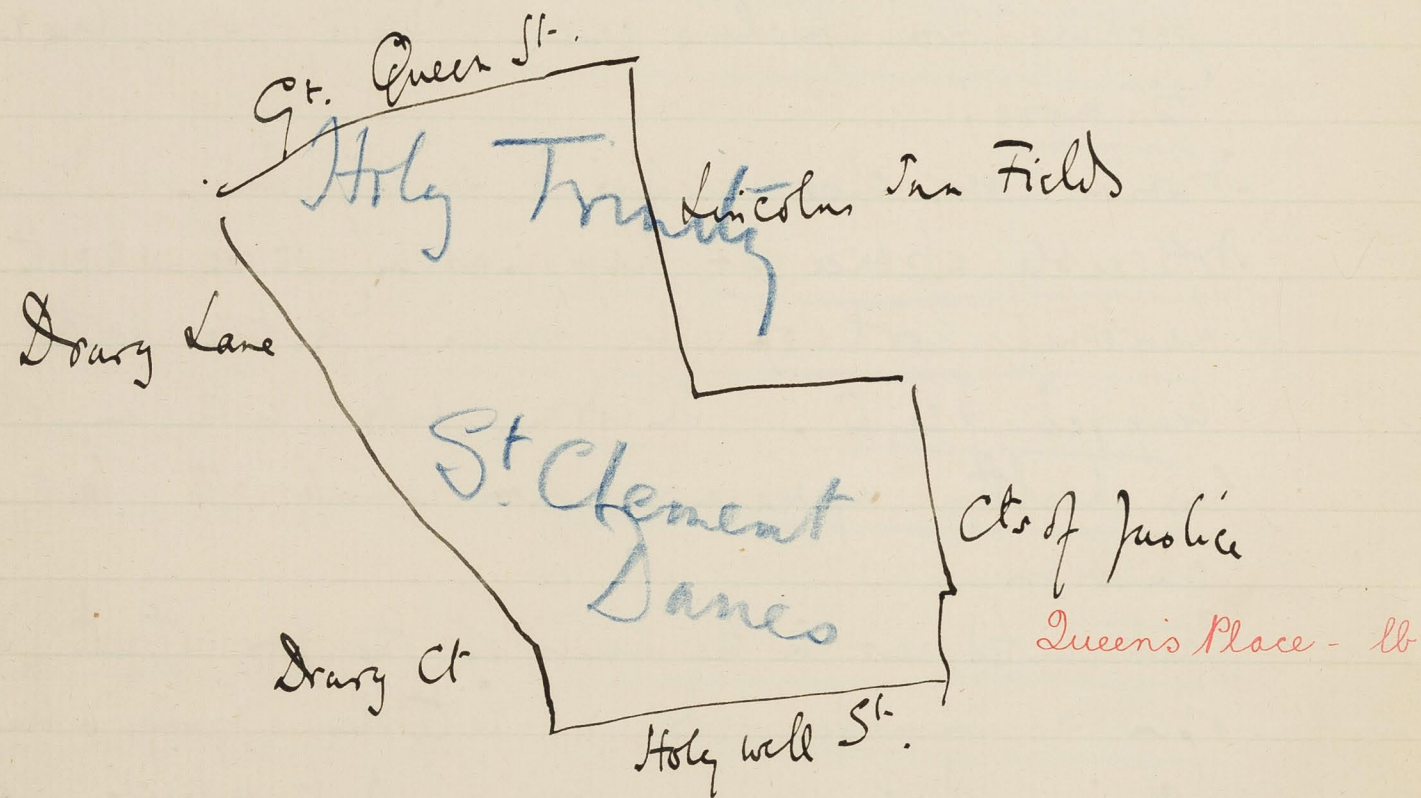 Gt. Queen St.
Holy Trinity
Lincolns Inn Fields
Drury Lane
St Clement
Danes
Cts of Justice
Queen's Place - lb
Drury Ct
Holy well St.